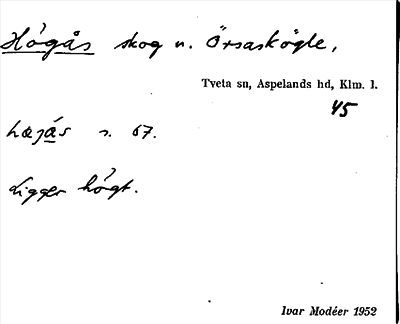 Högås skog u. Örsaskögle,
Tveta sn, Aspelands hd, Klm. l.
45
hœgás s. 67.
Ligger högt.
Ivar Modéer 1952